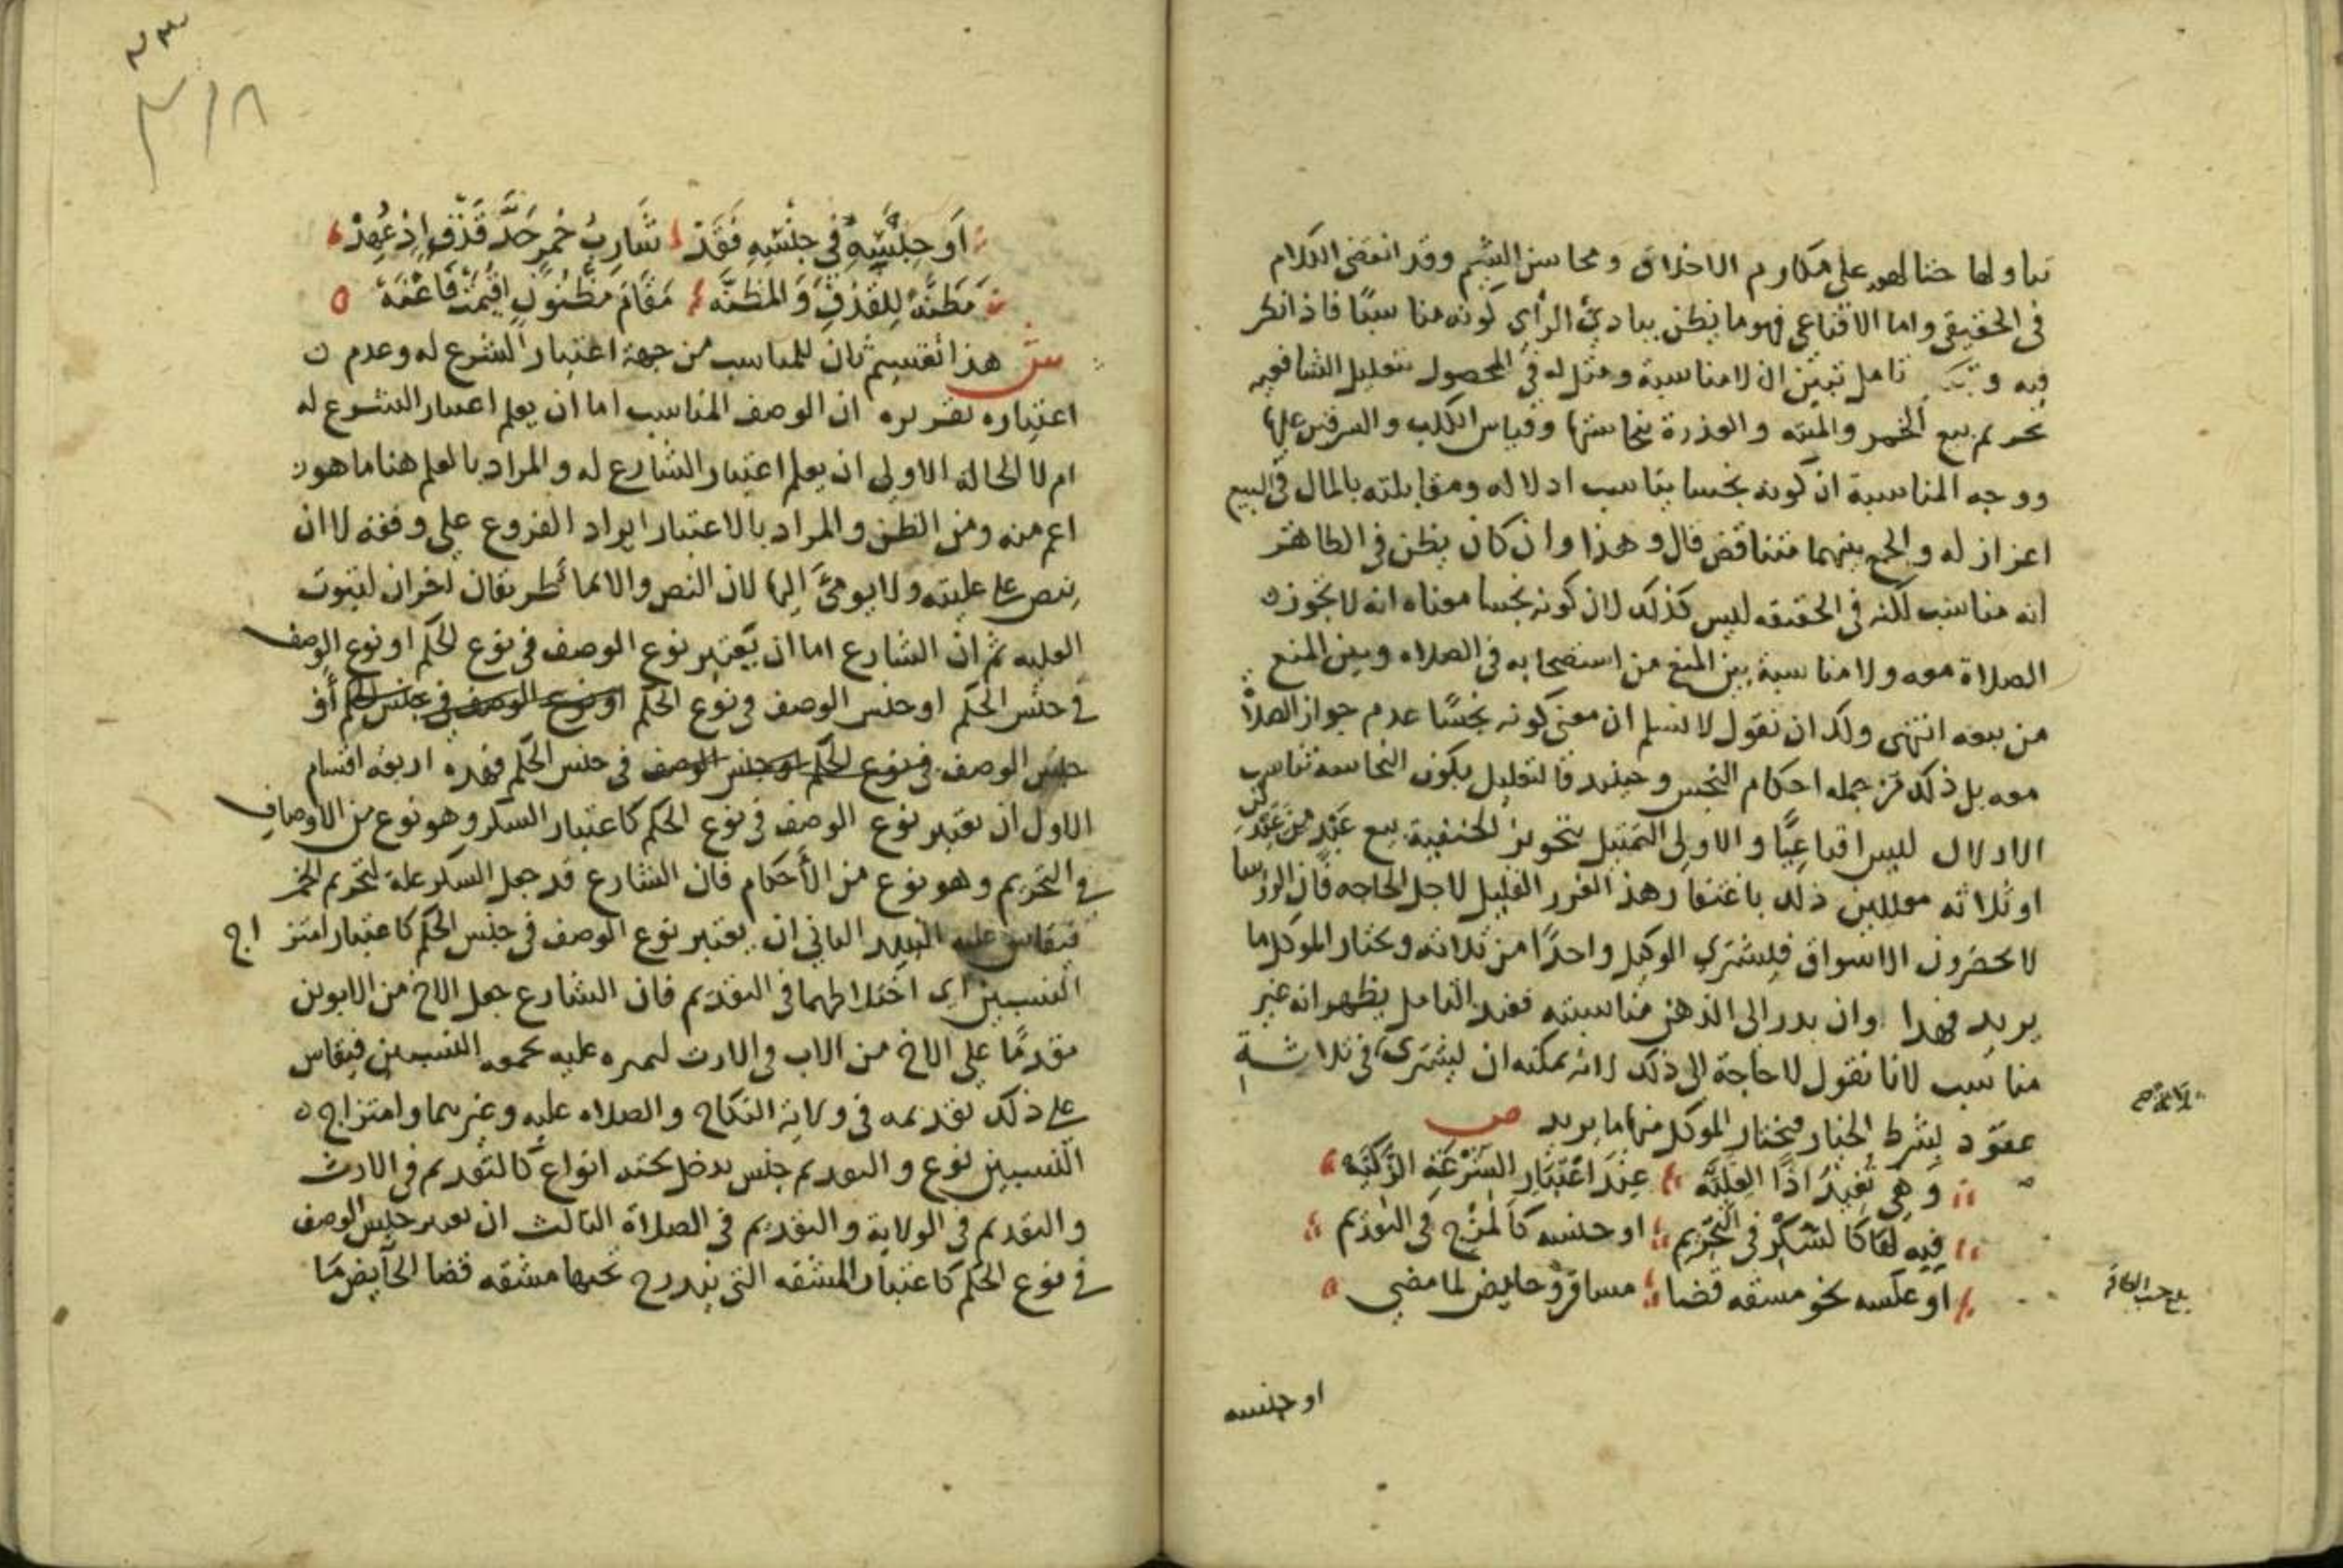 تناولها حثا لهم على مكارم الاخلاق ومحاسن الشيم وقد انقضى الكلام
في الحقيقي واما الاقناعي فهو ما يظن ببادئ الرأي كونه مناسبًا فاذا نكر
فيه تامل تبين ان لا مناسبة ومثل له في المحصول بتعليل الشافعيه
تحريم بيع الخمر والميته والعذرة بنجاستها وقياس الكلب والسرقين عليها
ووجه المناسبة ان كونه نجسا يناسب اذلاله ومقابلته بالمال في البيع
اعزاز له والجمع بينهما متناقض قال وهذا وان كان يظن في الظاهر
انه مناسب لكنه في الحقيقه ليس كذلك لان كونه نجسا معناه انه لا يجوز
الصلاة معه ولا مناسبة بين المنع من استصحابه في الصلاه وبين المنع
من بيعه انتهى ولك ان نقول لا نسلم ان معنى كونه نجسًا عدم جواز الصلاة
معه بل ذلك من جمله احكام النجس وحينيد فالتعليل بكون النجاسه تناسب
الاذلال ليس اقناعيًّا والاولى التمثيل بتجويز الحنفية بيع عبد من عبدين
او ثلاثه معللين ذلك باغتفار هذا الغرر القليل لاجل الحاجه فان الروسا
لا يحضرون الاسواق فيشتري الوكيل واحدًا من ثلاثه ويختار الموكل ما
يريد فهذا وان بدر الى الذهن مناسبته فعند التامل يظهر انه غير
مناسب لانا نقول لا حاجة الى ذلك لانه يمكنه ان يشتري في ثلاثة
عقود بشرط الخيار فيختار الموكل منها ما يريد ص
وَهِيَ تُفِيدُ اذًا العِلِّيَّه عِندَ اعْتِبَارِ الشِّرْعَةِ الزَّكِيَّه
فِيهِ لهَا كالسُّكْرِ في التَّحْرِيم او جنسه كالمَزْجِ في التقديم
او عكسه نحو مشقه قضا مسافر وحايض لما مضى
او جنسه
اَو جِنْسِهِ في جِنْسِهِ فَقَدْ شَارِبُ خمرٍ حَدَّ قَذْفٍ اِذ عُهِدْ
مَظَنَّةً لِلقَذْفِ وَالمَظِنَّه مَقَامَ مَظنُونٍ اُقِيمَتْ فَاعْنَهْ
ش هذا تقسيم ثان للمناسب من جهة اعتبار الشرع له وعدم
اعتباره تقريره ان الوصف المناسب اما ان يعلم اعتبار الشرع له
ام لا الحالة الاولى ان يعلم اعتبار الشارع له والمراد بالعلم هنا ما هو
اعم منه ومن الظن والمراد بالاعتبار ايراد الفروع على وفقه لا ان
ينص على عليته ولا يومئ اليها لان النص والايما طريقان اخران لثبوت
العليه ثم ان الشارع اما ان يعتبر نوع الوصف في نوع الحكم او نوع الوصف
في جنس الحكم او جنس الوصف في نوع الحكم او نوع الوصف في جنس الحكم أو
جنس الوصف في نوع الحكم او جنس الوصف في جنس الحكم فهذه اربعه اقسام
الاول ان يعتبر نوع الوصف في نوع الحكم كاعتبار السكر وهو نوع من الاوصاف
في التحريم وهو نوع من الأحكام فان الشارع قد جعل السكر علة لتحريم الخمر
فيقاس عليه النبيد الثاني ان يعتبر نوع الوصف في جنس الحكم كاعتبار امتز اج
النسبين اي اختلاطهما في التقديم فان الشارع جعل الاخ من الابوين
مقدمًا على الاخ من الاب في الارث لتميزه عليه بجمعه النسبين فيقاس
على ذلك تقديمه في ولاية النكاح والصلاه عليه وغيرهما وامتزاج
النسبين نوع والتقديم جنس يدخل تحته انواع كالتقديم في الارث
والتقديم في الولاية والتقديم في الصلاة الثالث ان يعتبر جنس الوصف
في نوع الحكم كاعتبار المشقه التي يندرج تحتها مشقه قضا الحآيض ما